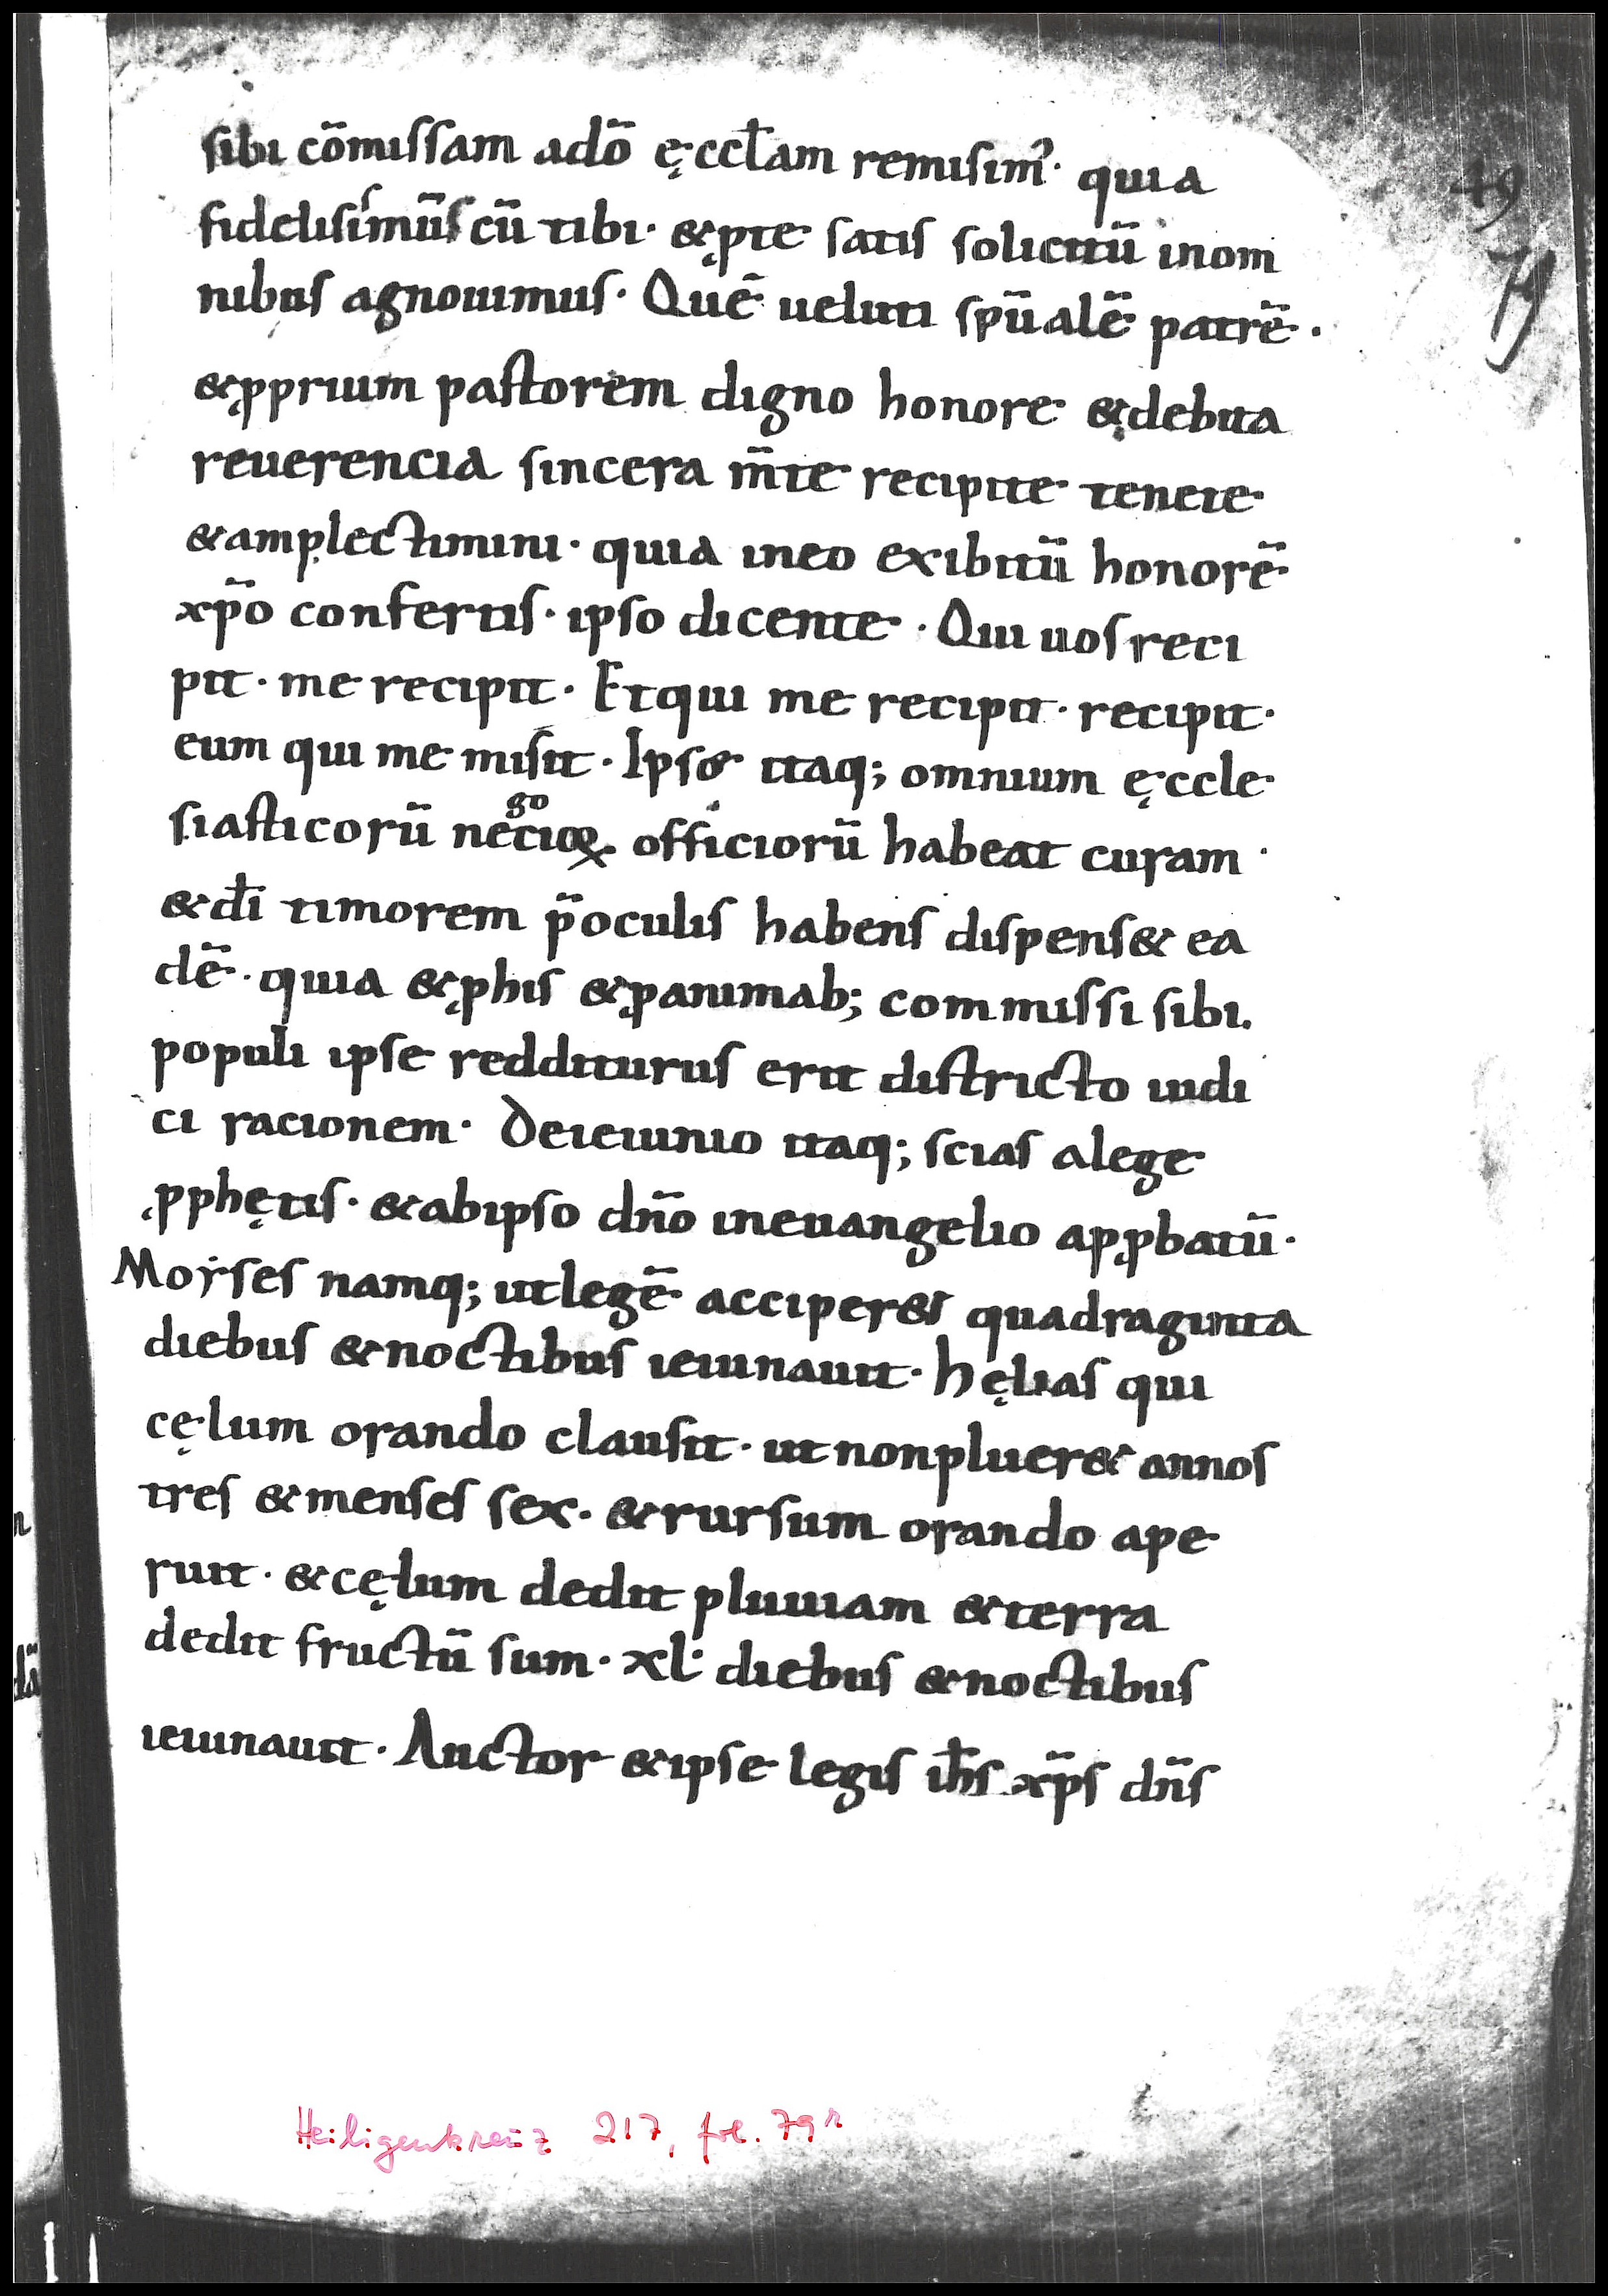 sibi cō̄missam adō ęccƚam remisim᷒· quia
fidelisſimūs cū tibi· & ꝓ te satis solicitū in om
nibus agnouimus· Quē ueluti spūalē patrē·
& ꝓprium pastorem digno honore & debita
reuerencia sincera m̄te recipite tenete
& amplectimini· quia in eo exibitū honorē
xp̄o confertis· ipso dicente· Qui uos reci
pit· me recipit· Et qui me recipit· recipit·
eum qui me misit· Ipse itaq; omnium ęccle
siasticorū negocioꝝ officiorū habeat curam·
& dī timorem p̄ oculis habens dispens& ea
dē· quia & ꝓ his & ꝓ animab; commissi sibi.
populi ipse redditurus erit districto iudi
ci racionem· De ieiunio itaq; scias a lege
ꝓphętis· & ab ipso dn̄o in euangelio apꝓbatū·
Moẏses namq; ut legē acciper& quadraginta
diebus & noctibus ieiunauit· hęlias qui
cęlum orando clausit· ut non pluer& annos
tres & menses sex· & rursum orando ape
ruit· & cęlum dedit pluuiam & terra
dedit fructū sum· xl· diebus & noctibus
ieiunauit· Auctor & ipse legis ih̄s xp̄s dn̄s
49
79
Heiligenkreuz 217, fol. 79r